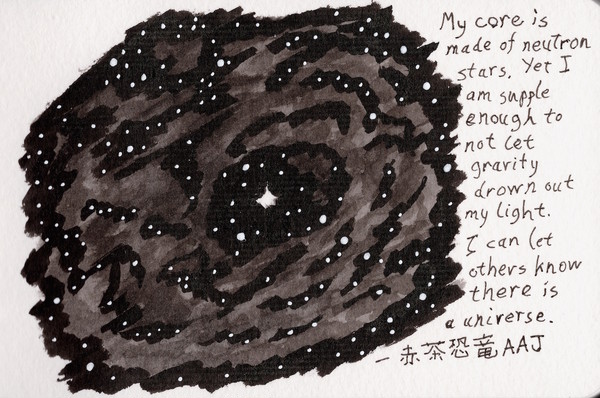 My core is
made of neutron
stars. Yet I
am supple
enough to
not let
gravity
drown out
my light.
I can let
others know
there is
a universe.
- 赤茶恐竜AAJ